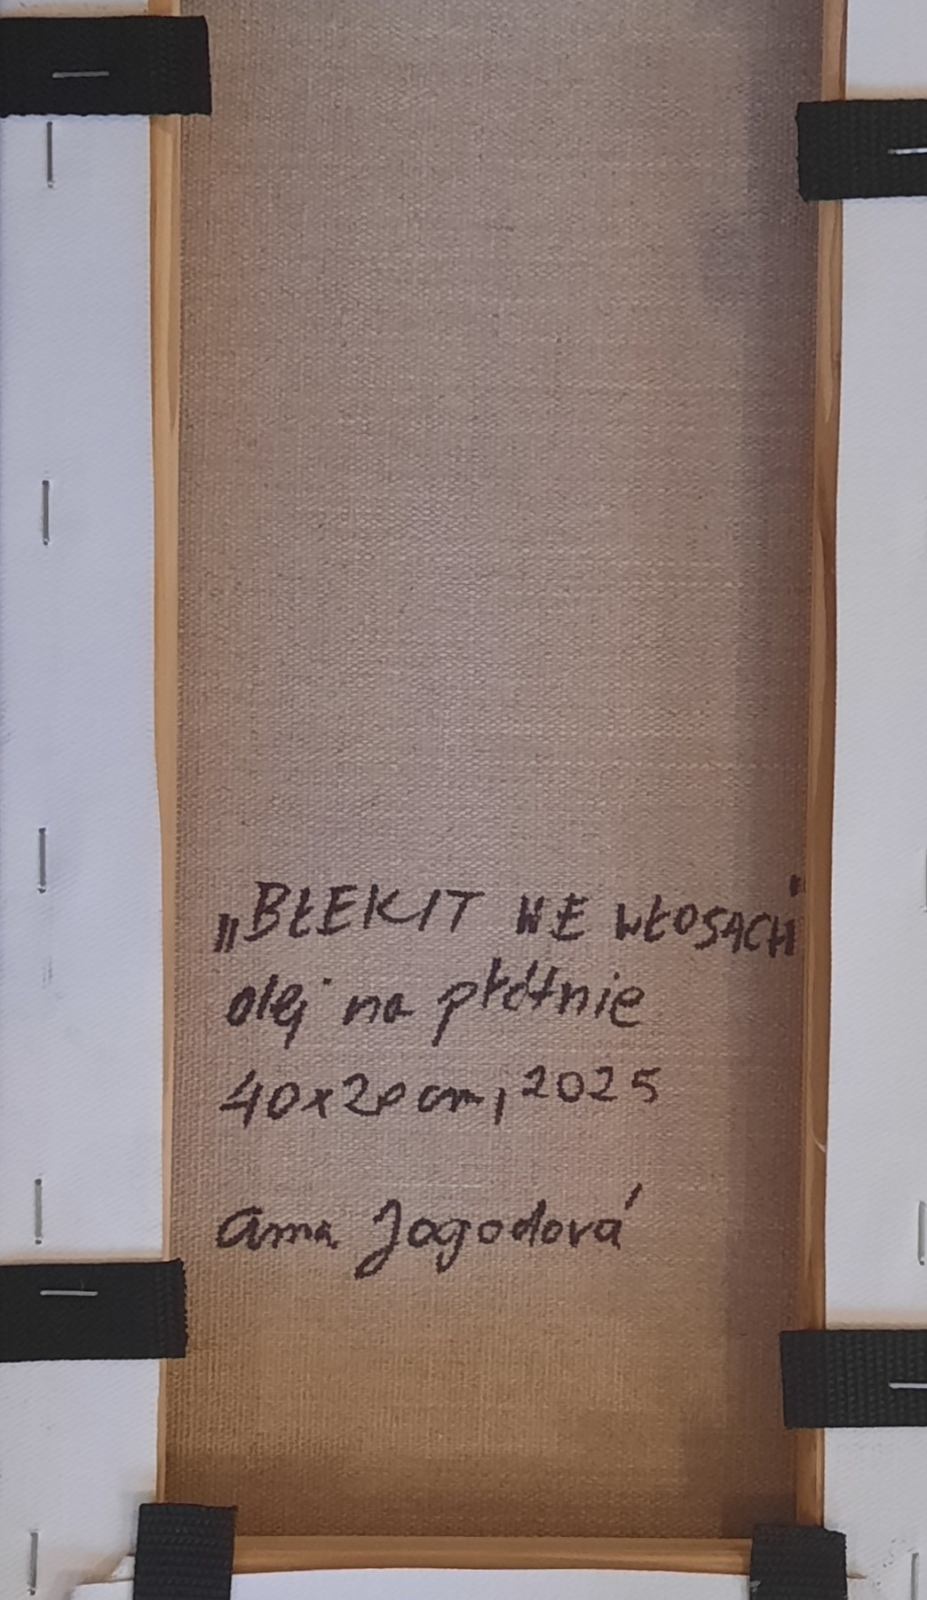 „BŁEKIT WE WŁOSACH"
olej na płótnie
40x20 cm, 2025
Anna Jagodová